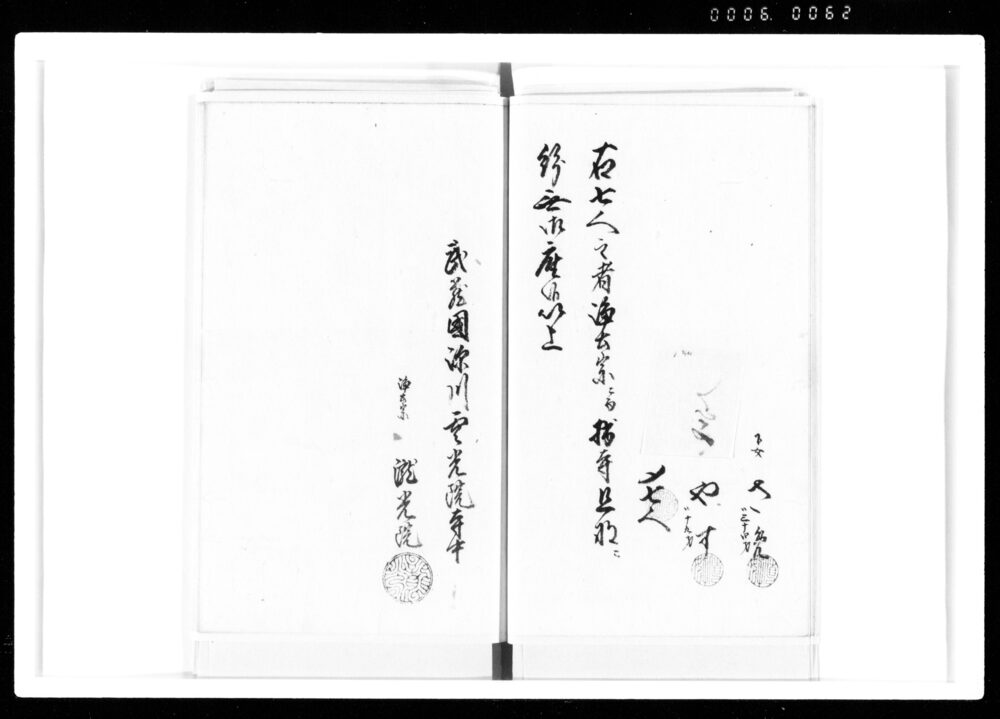 0006. 0062
下女
三十四才
や す
十九才
〆七人
右七人之者浄土宗ニ而拙寺旦那ニ
紛無御座候以上
武蔵國深川雲光院寺中
浄土宗
瀧光院